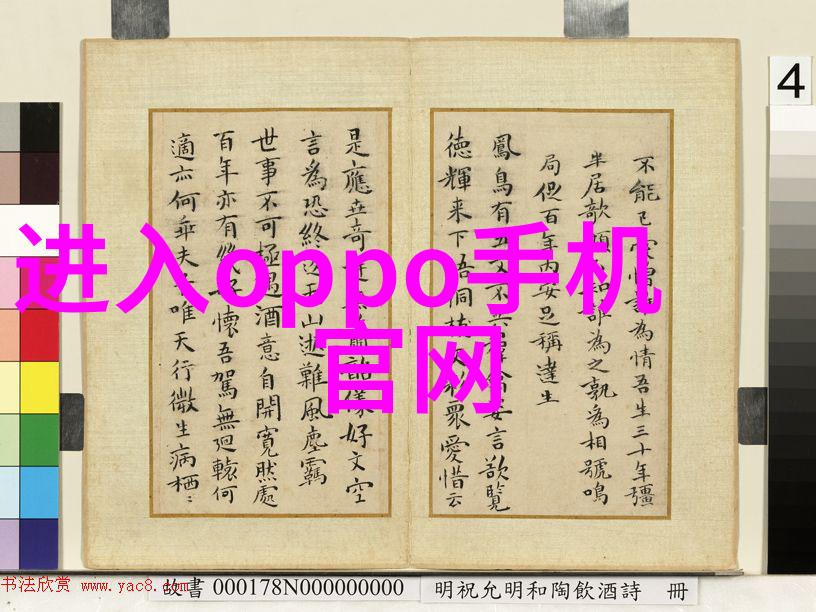 進入oppo手机
官网
4
不能已為情吾生三十年彊
半居欹誰為之孰為相號鳴
局促百年內安足稱達生
鳳鳥有言欲覽
徳輝来下吾衆愛惜云
是應好文空
言為恐終山逃難風塵霸
世事不可極遇酒意自開寬然處
百年亦有懷吾駕無迴轅何
適亦何乖夫唯天行微生病栖
书法欣赏 www.yac8.com
故書 000178N000000000
明祝允明和陶飲酒詩 冊